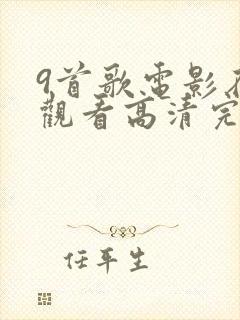 9首歌電影在
觀看高清完
任平生